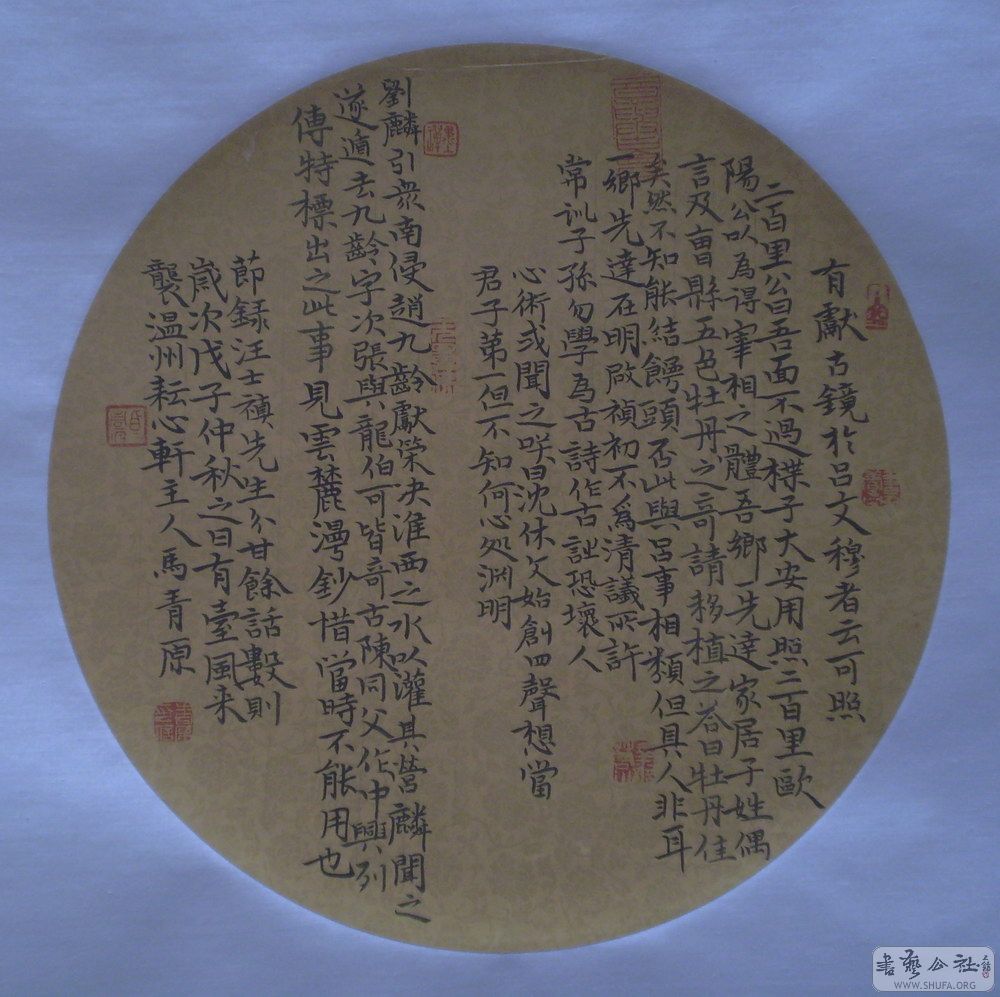 有獻古鏡於呂文穆者云可照
二百里公曰吾面不過楪子大安用照二百里歐
陽公以為得宰相之體吾鄉一先達家居子姓偶
言及曹縣五色牡丹之奇請移植之答曰牡丹佳
矣然不知能結餺頭否此與呂事相類但其人非耳
一鄉先達在明啟禎初不為清議所許
常訓子孫勿學為古詩作古詩恐壞人
心術或聞之咲曰沈休文始創四聲想當
君子第一但不知何心処淵明
劉麟引衆南侵趙九齡獻策決淮西之水以灌其營麟聞之
遂遁去九齡字次張與龍伯可皆奇古陳同父作中興列
傳特標出之此事見雲麓漫鈔惜當時不能用也
節録汪士禛先生分甘餘話數則
歲次戊子仲秋之日有臺風来
襲温州耘心軒主人馬青原
書藝公社
WWW.SHUFA.ORG